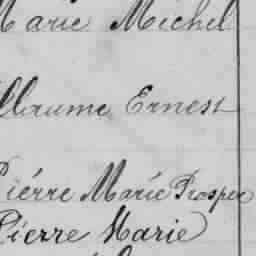 Marie Michel
illaume Ernest
Piérre Marie Prosper
Pierre Marie